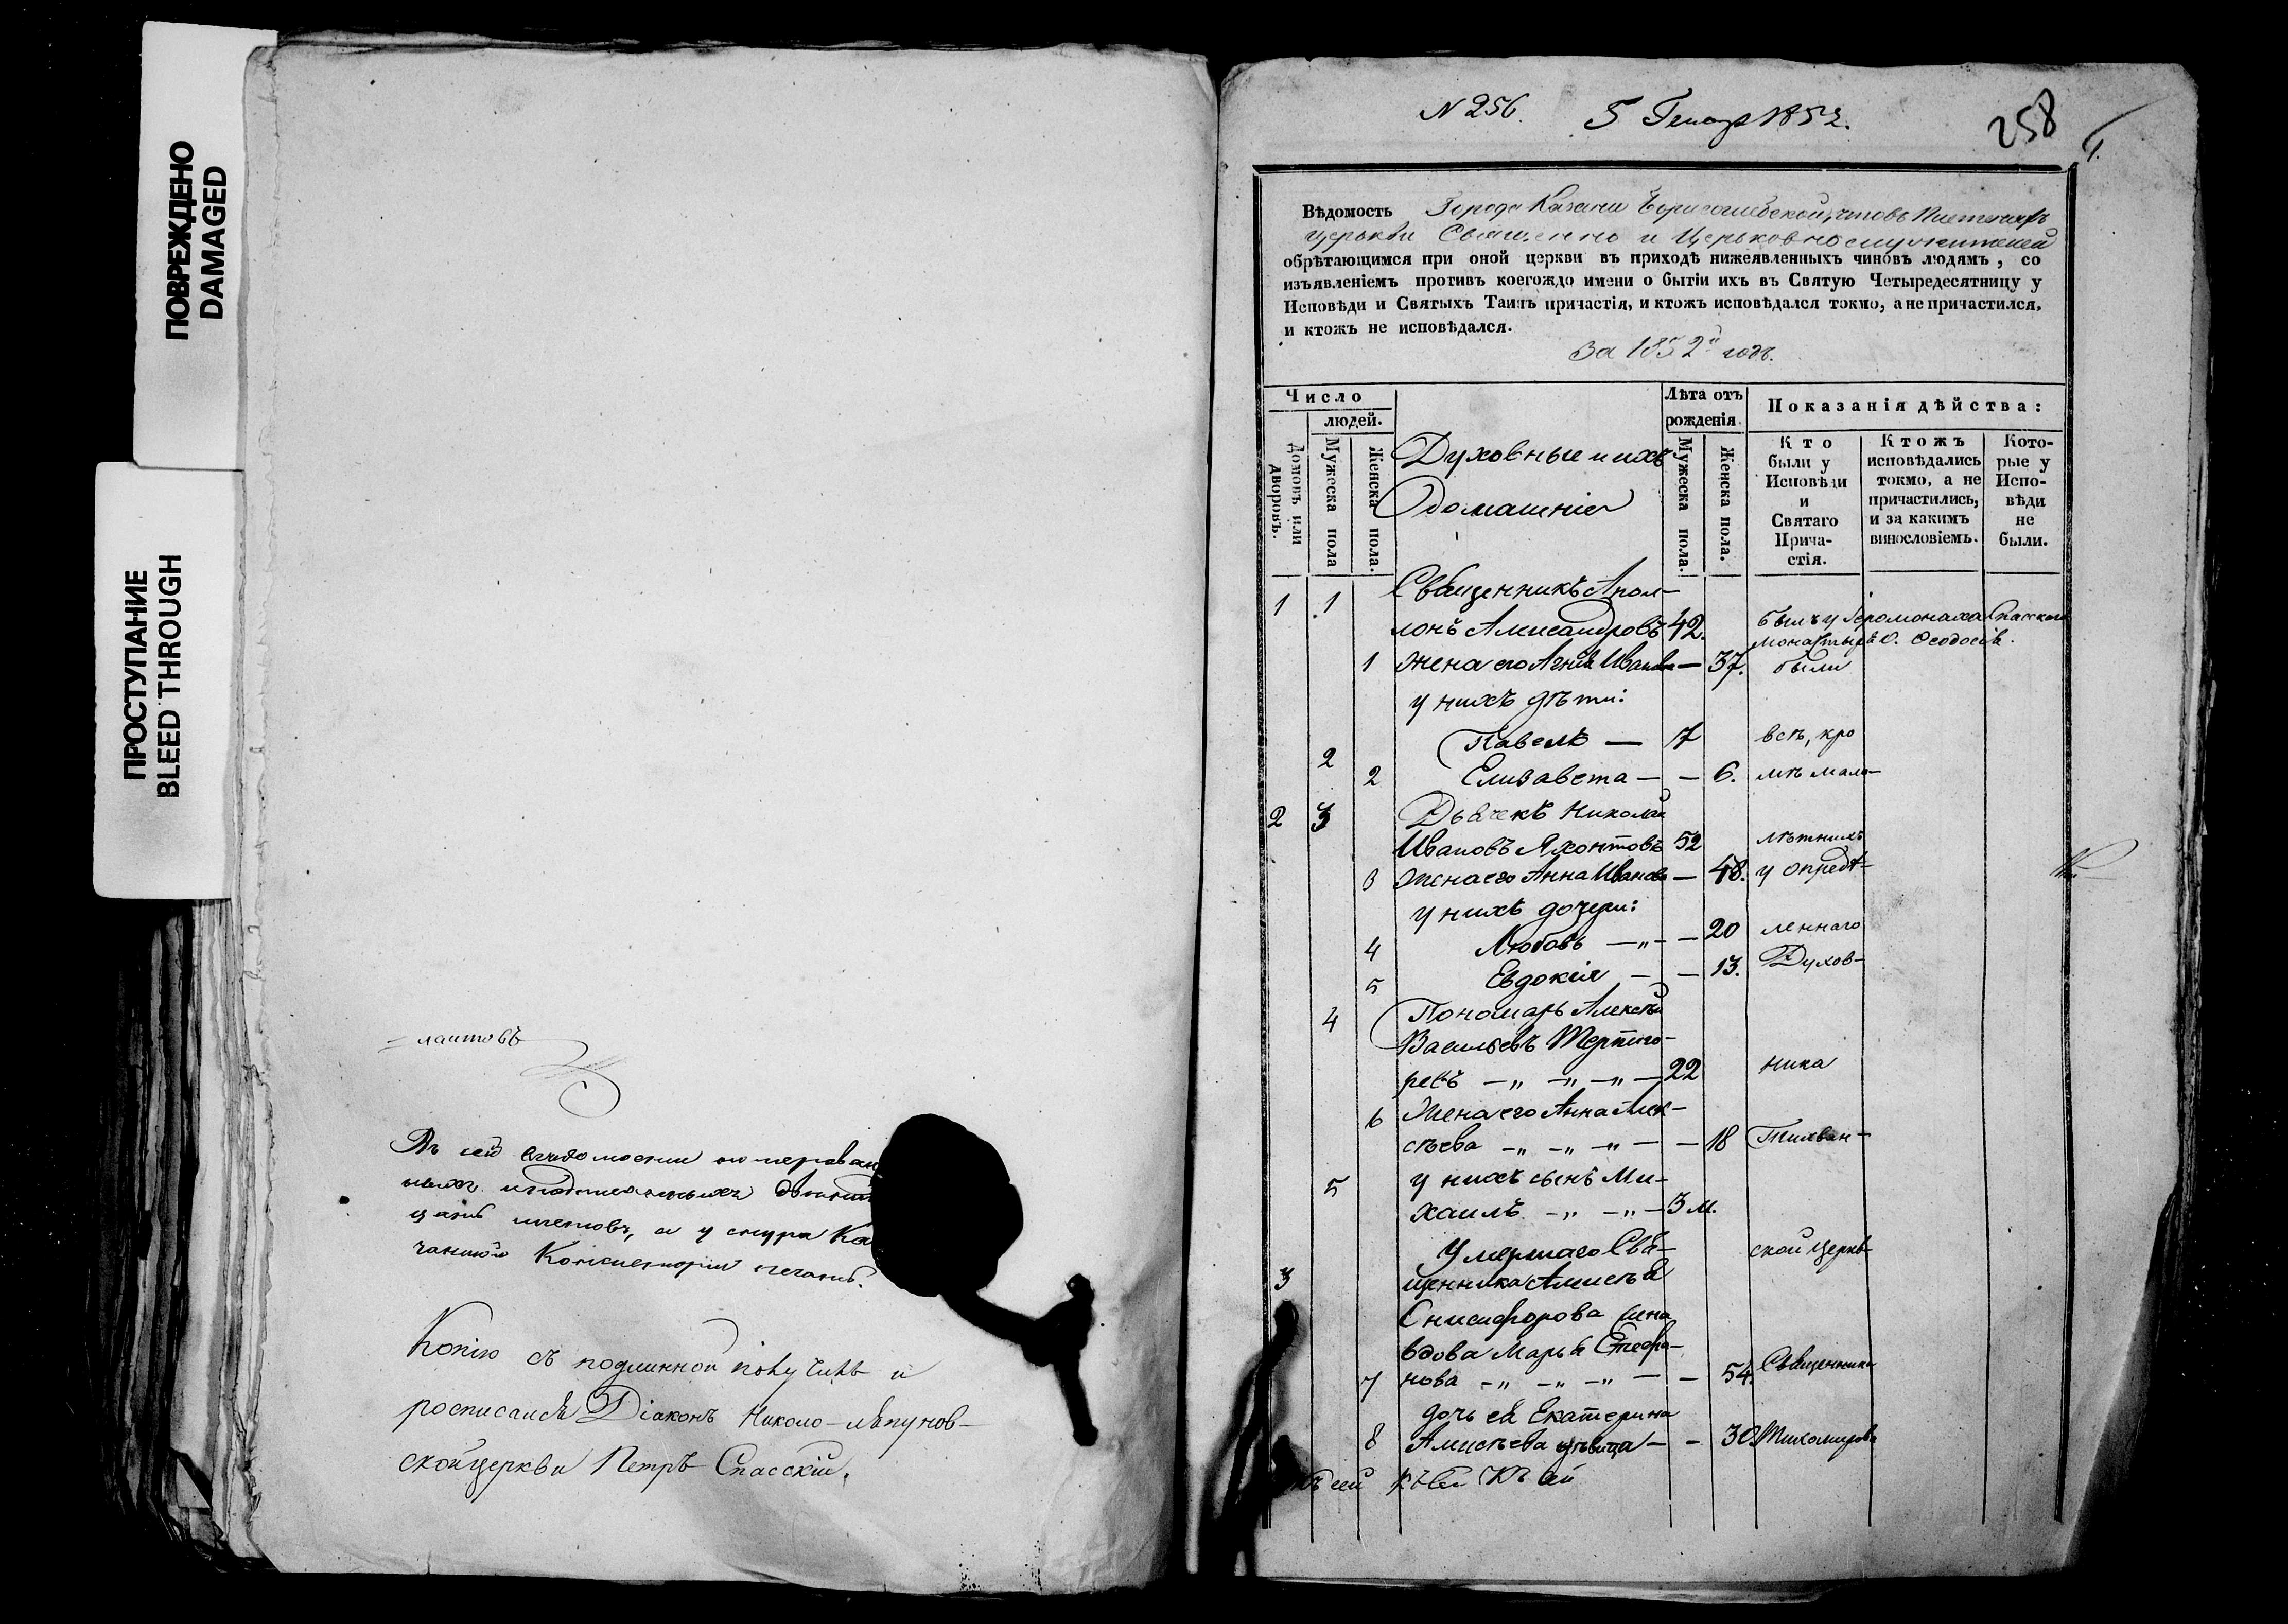 ПОВРЕЖДЕНО
DAMAGED
ПРОСТУПАНИЕ
BLEED THROUGH
Въ сей
цать листовъ, а у снура
Консисторіи печать.
Копію съ подлинной получилъ и
росписался Діаконъ Николо-ляпунов-
ской церкви Петръ Спасскій.
N 256. 5 1852.
258
1.
Вѣдомость Города Казани Борисоглѣбской, что въ
церкви Священно и Церковнослужителей
обрѣтающимся при оной церкви въ приходѣ нижеявленныхъ чиновъ людямъ, со
изъявленіемъ противъ коегождо имени о бытіи ихъ въ Святую Четыредесятницу у
Исповѣди и Святыхъ Таинъ причастія, и ктожъ исповѣдался токмо, а не причастился,
и ктожъ не исповѣдался.
За 1852й годъ.
Число
людей.
Домовъ или дворовъ.
Мужеска пола
Женска пола.
Духовные и ихъ
домашніе
Лѣта отъ
рожденія.
Мужеска пола.
Женска пола.
Показанія дѣйства:
Кто
были у
Исповѣди
и
Святаго
Прича-
стія.
Ктожъ
исповѣдались
токмо, а не
причастились,
и за какимъ
винословіемъ.
Кото-
рые у
Испо-
вѣди
не
были.
1 1 Священникъ Апол-
лонъ Александровъ 42. былъ у Іеромонаха Спасскаго
монастыря О. Ѳеодосія.
1 жена его Агнія Иванова — 37. были
у нихъ дѣти:
2 Павелъ — 7 всѣ, кро
2 Елизавета — — 6. мѣ мало-
2 3 Дьячекъ Николай
Ивановъ Яхонтовъ 52 лѣтнихъ
3 Жена его Анна Иванова — 48. у опредѣ-
у нихъ дочери:
4 Любовь — „ — — 20 леннаго
5 Евдокія — — 13. Духов-
4 Пономарь Алексѣй
Васильевъ
— „ — „ — „ — 22 ника
6 Жена его Анна Алек-
сѣева — „ — „ — „ — — 18 Тихвин-
5 у нихъ сынъ Ми-
хаилъ — „ — „ — 3 м.
3 Умершаго Свя- ской церкви
щенника Алексѣя
Онисифорова
вдова Марья Стефа-
7 нова — „ — „ — „ — — 54. Священника
дочь ея Екатерина
8 Алексѣева дѣвица — — 30. Тихомирова